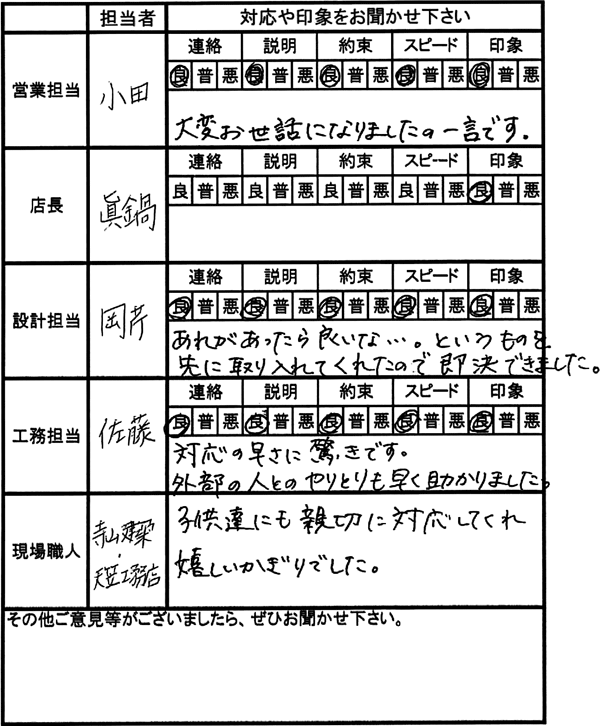 担当者 対応や印象をお聞かせ下さい
営業担当 小田
連絡 説明 約束 スピード 印象
良 普 悪 良 普 悪 良 普 悪 良 普 悪 良 普 悪
大変お世話になりましたの一言です。
店長 眞鍋
連絡 説明 約束 スピード 印象
良 普 悪 良 普 悪 良 普 悪 良 普 悪 良 普 悪
設計担当 岡芹
連絡 説明 約束 スピード 印象
良 普 悪 良 普 悪 良 普 悪 良 普 悪 良 普 悪
あれがあったら良いな…。というものを
先に取り入れてくれたので即決できました。
工務担当 佐藤
連絡 説明 約束 スピード 印象
良 普 悪 良 普 悪 良 普 悪 良 普 悪 良 普 悪
対応の早さに驚きです。
外部の人とのやりとりも早く助かりました。
現場職人
寺山建築
・
工務店
子供達にも親切に対応してくれ
嬉しいかぎりでした。
その他ご意見等がございましたら、ぜひお聞かせ下さい。